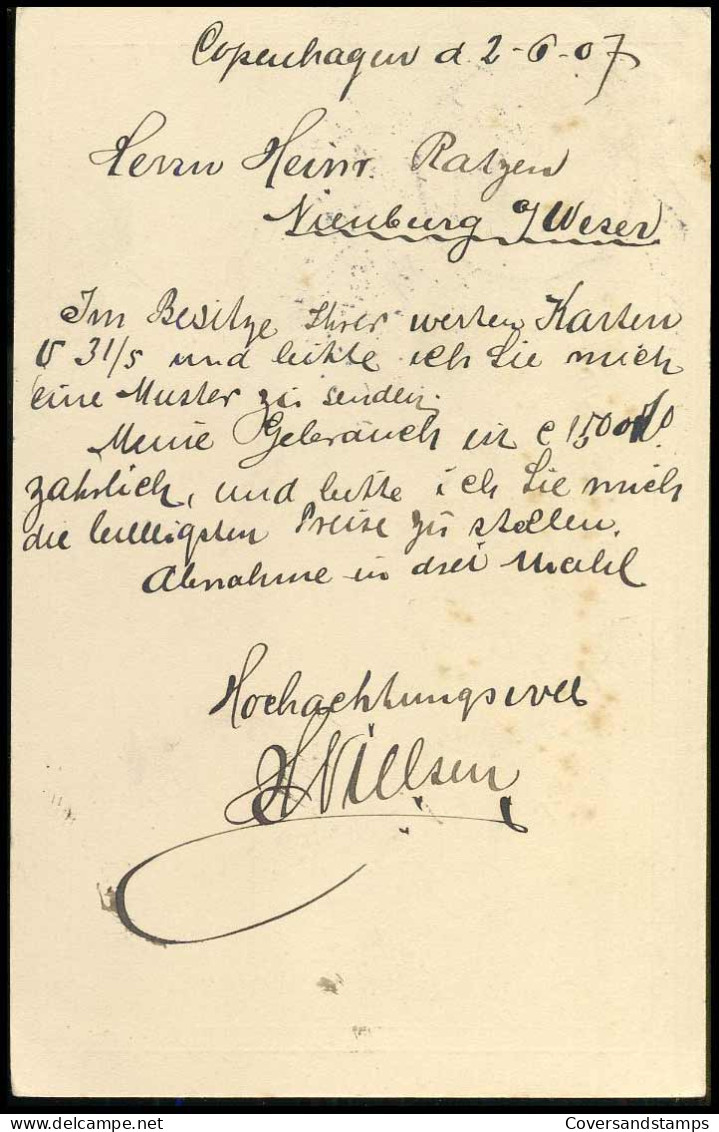 Copenhagen d. 2-6-07
Herrn Heinr. Ratzen
Nienburg a/Weser
Im Besitze Ihrer werten Karten
v 31/5 und bitte ich Sie mich
eine Muster zu senden.
Meine Gebrauch in c 1500
zahrlich, und bitte ich Sie mich
die billigsten Preise zu stellen.
Abnahme in drei Mahl
Hochachtungsvoll
H Nielsen
Coversandstamps